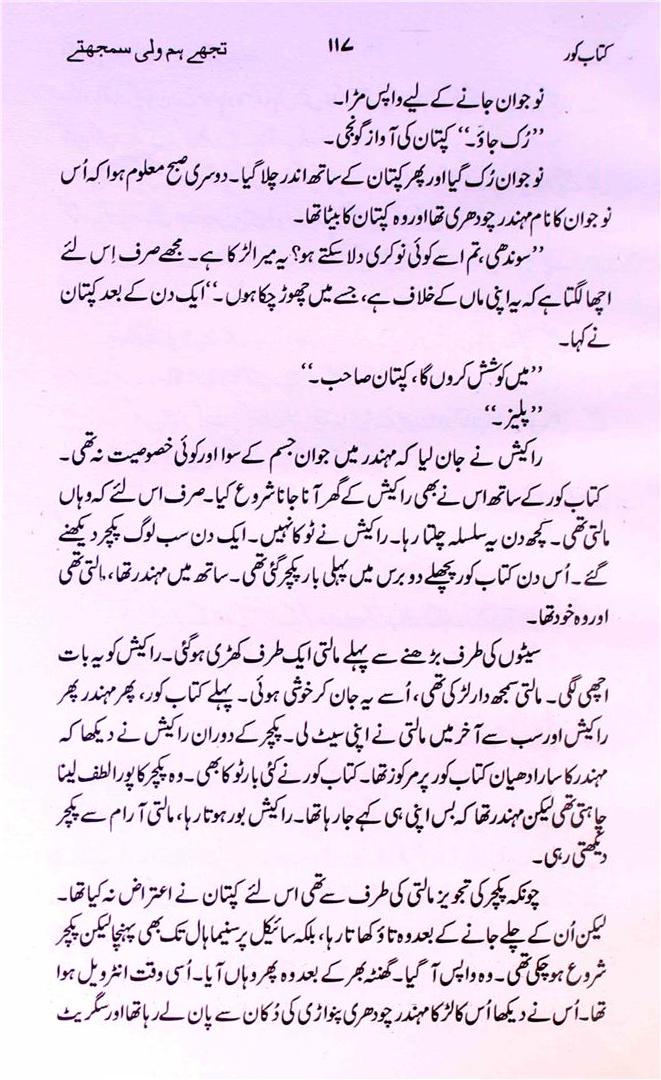 کتاب کور ۱۱۷ تجھے ہم ولی سمجھتے
نوجوان جانے کے لیے واپس مڑا۔
’’رُک جاؤ۔‘‘ کپتان کی آواز گونجی۔
نوجوان رُک گیا اور پھر کپتان کے ساتھ اندر چلا گیا۔ دوسری صبح معلوم ہوا کہ اُس
نوجوان کا نام مہندر چودھری تھا اور وہ کپتان کا بیٹا تھا۔
’’سوندھی، تم اسے کوئی نوکری دلا سکتے ہو؟ یہ میرا لڑکا ہے۔ مجھے صرف اِس لئے
اچھا لگتا ہے کہ یہ اپنی ماں کے خلاف ہے، جسے میں چھوڑ چکا ہوں۔‘‘ ایک دن کے بعد کپتان
نے کہا۔
’’میں کوشش کروں گا، کپتان صاحب۔‘‘
’’پلیز۔‘‘
راکیش نے جان لیا کہ مہندر میں جوان جسم کے سوا اور کوئی خصوصیت نہ تھی۔
کتاب کور کے ساتھ اس نے بھی راکیش کے گھر آنا جانا شروع کیا۔ صرف اس لئے کہ وہاں
مالتی تھی۔ کچھ دن یہ سلسلہ چلتا رہا۔ راکیش نے ٹوکا نہیں۔ ایک دن سب لوگ پکچر دیکھنے
گئے۔ اُس دن کتاب کور پچھلے دو برس میں پہلی بار پکچر گئی تھی۔ ساتھ میں مہندر تھا، مالتی تھی
اور وہ خود تھا۔
سیٹوں کی طرف بڑھنے سے پہلے مالتی ایک طرف کھڑی ہوگئی۔ راکیش کو یہ بات
اچھی لگی۔ مالتی سمجھ دار لڑکی تھی، اُسے یہ جان کر خوشی ہوئی۔ پہلے کتاب کور، پھر مہندر پھر
راکیش اور سب سے آخر میں مالتی نے اپنی سیٹ لی۔ پکچر کے دوران راکیش نے دیکھا کہ
مہندر کا سارا دھیان کتاب کور پر مرکوز تھا۔ کتاب کور نے کئی بار ٹوکا بھی۔ وہ پکچر کا پورا لطف لینا
چاہتی تھی لیکن مہندر تھا کہ بس اپنی ہی کہے جا رہا تھا۔ راکیش بور ہوتا رہا، مالتی آرام سے پکچر
دیکھتی رہی۔
چونکہ پکچر کی تجویز مالتی کی طرف سے تھی اس لئے کپتان نے اعتراض نہ کیا تھا۔
لیکن اُن کے چلے جانے کے بعد وہ تاؤ کھاتا رہا، بلکہ سائیکل پر سنیما ہال تک بھی پہنچا لیکن پکچر
شروع ہوچکی تھی۔ وہ واپس آگیا۔ گھنٹہ بھر کے بعد وہ پھر وہاں آیا۔ اُسی وقت انٹرویل ہوا
تھا۔ اُس نے دیکھا اُس کا لڑکا مہندر چودھری پنواڑی کی دُکان سے پان لے رہا تھا اور سگریٹ